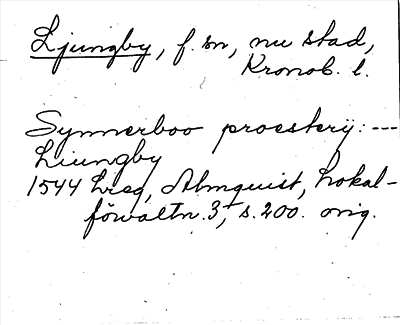 Ljungby, f. sn, nu stad,
Kronob. l.
Synnerboo proesterij: ---
Liungby
1544 Lreg, Almquist, Lokal-
förvaltn. 3, s. 200. orig.